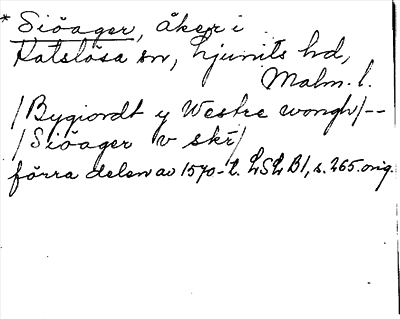 * Siöager, åker i
Katslösa sn, Ljunits hd,
Malm. l.
/Bygiordt y Westre wongh/--
/Siöager v skr/
förra delen av 1570-t. LSL B1, s. 265. orig.